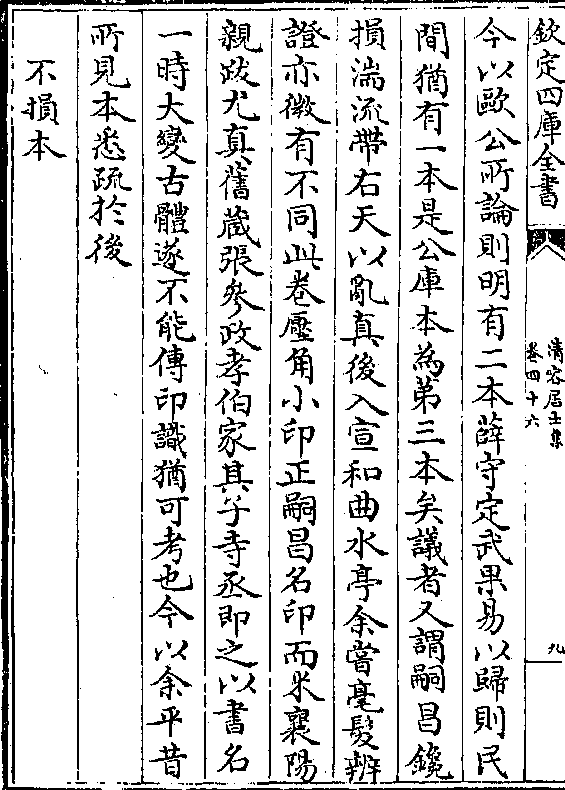 欽定四庫全書
清容居士集
卷四十六
九
今以歐公所論則明有二本薛守定武果易以歸則民
間猶有一本是公庫本為第三本矣議者又謂嗣昌鑱
損湍流帶右天以亂真後入宣和曲水亭余嘗毫髪辨
證亦微有不同此卷壓角小印正嗣昌名印而米襄陽
親跋尤真舊蔵張參政孝伯家其子寺丞即之以書名
一時大變古體遂不能傳印識猶可考也今以余平昔
所見本悉疏於後
不損本